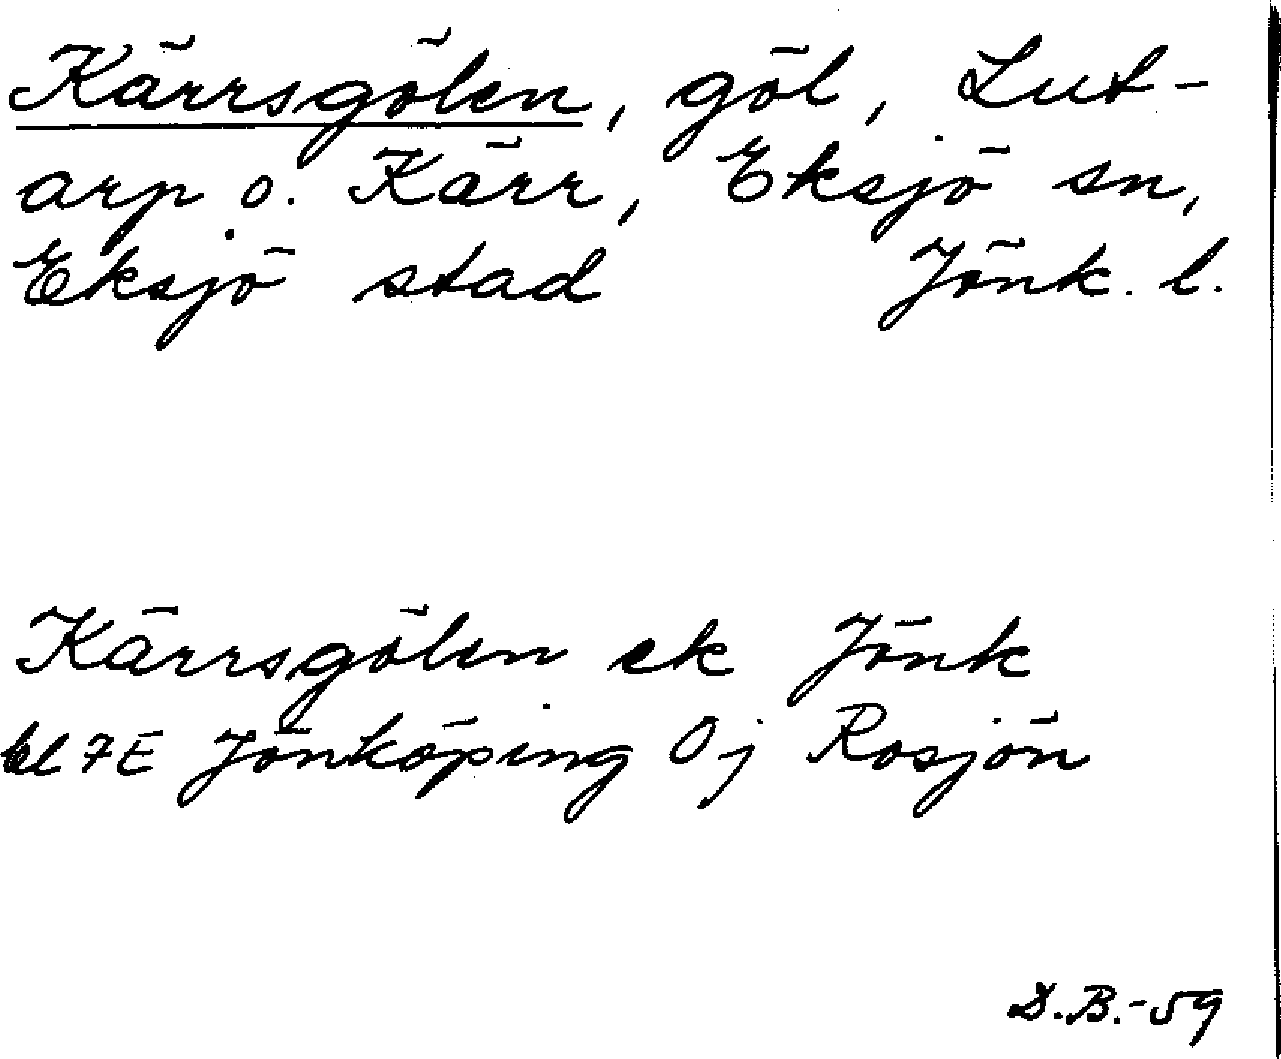 Kärrsgölen, göl, Lut-
arp o. Kärr, Eksjö sn,
Eksjö stad Jönk. l.
Kärrsgölen ek Jönk
bl 7E Jönköping 0j Rosjön
D.B.-59